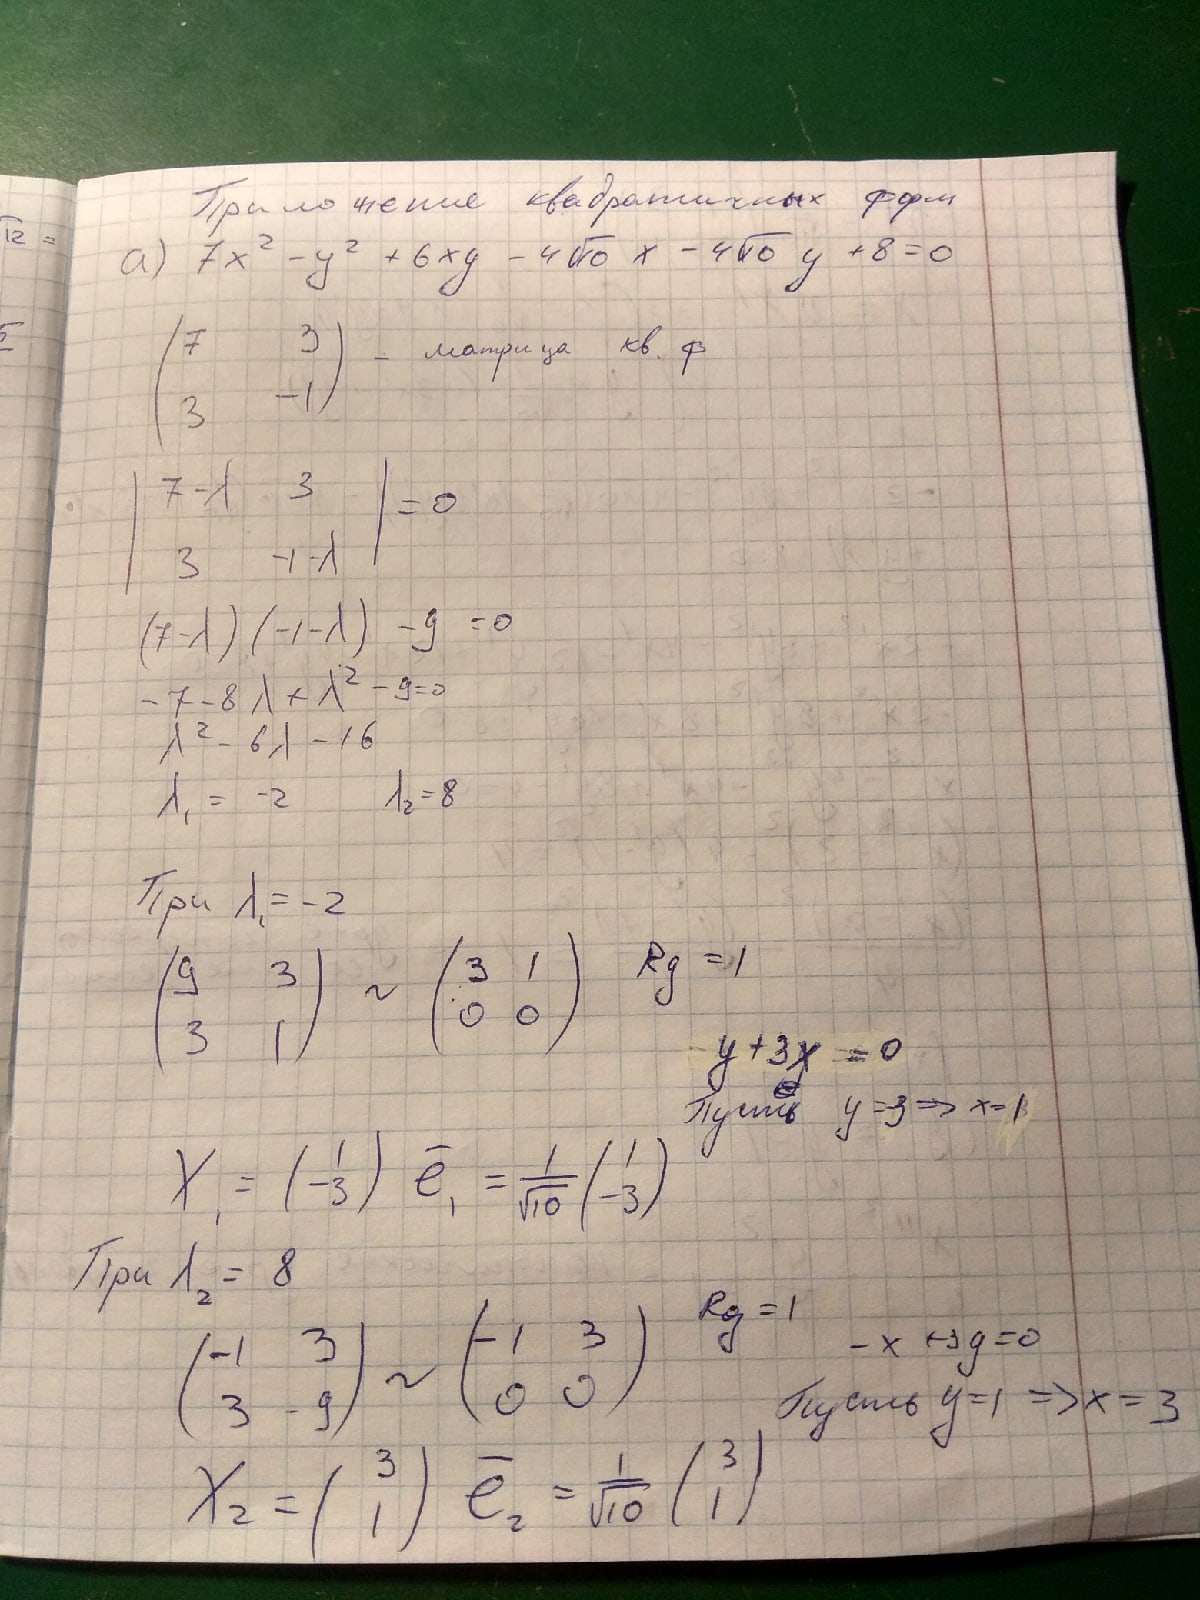 Приложение квадратичных форм
√12 =
а) 7x² - y² + 6xy - 4√10 x - 4√10 y + 8 = 0
(7 3
3 -1) - матрица кв. ф
|7-λ 3
3 -1-λ| = 0
(7-λ)(-1-λ) - 9 = 0
-7-8λ+λ²-9=0
λ² - 6λ - 16
λ₁ = -2 λ₂ = 8
При λ₁ = -2
(9 3
3 1) ~ (3 1
0 0) Rg = 1
y + 3x = 0
Пусть y = 3 => x = 1
X₁ = (1
-3) e̅₁ = 1/√10 (1
-3)
При λ₂ = 8
(-1 3
3 -9) ~ (-1 3
0 0) Rg = 1
-x + 3y = 0
Пусть y = 1 => x = 3
X₂ = (3
1) e̅₂ = 1/√10 (3
1)